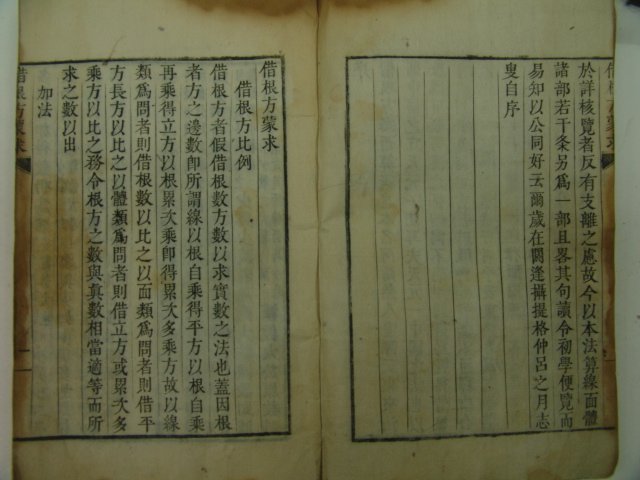 於詳核覽者反有支離之慮故今以本法算線面體
諸部若干条另爲一部且畧其句讀令初學便覽而
易知以公同好云爾歲在閼逢攝提格仲呂之月志
叟自序
借根方蒙求
借根方比例
借根方者假借根數方數以求實數之法也蓋因根
者方之邊數卽所謂線以根自乘得平方以根自乘
再乘得立方以根累次乘卽得累次多乘方故以線
類爲問者則借根數以比之以面類爲問者則借平
方長方以比之以體類爲問者則借立方或累次多
乘方以比之務令根方之數與真數相當適等而所
求之數以出
加法
借根方蒙求